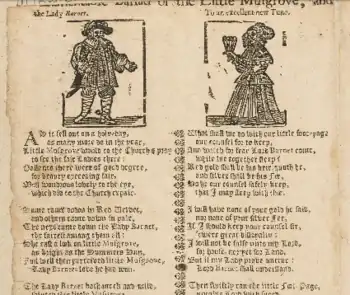 Ballad of the Little Musgrove, and
the Lady Barnet.
To an excellent new Tune.
AS it fell out on a holy-day,
as many more in the year,
Little Musgrove would to the Church & pray
to see the fair Ladies there:
there were of each degree,
for beauty exceeding fair,
wondrous lovely to the eye,
which did to the Church repair.
Some came down in Red Velvet,
and others came down in Pale,
The next came down the Lady Barnet,
the fairest among them all:
She cast a look on little Musgrove,
as bright as the Summers Sun,
Full well then perceived little Musgrove,
Lady Barnets love he had won.
The Lady Barnet
What shall we do with our little Foot-page
our counsel for to keep,
And watch for fear Lord Barnet come,
while we together sleep?
Red gold shall be his quoth he,
and silver shall be his fee,
So he our counsel safely keep,
that I may sleep with thee.
I will have none of your gold he said,
nor none of your silver fee,
If I should keep your counsel sir,
great
I will not be false unto my Lord,
for house nor yet for Land,
But if my Lady prove untrue
Lord Barnet shall understand.
Then swiftly ran the little Foot-Page,